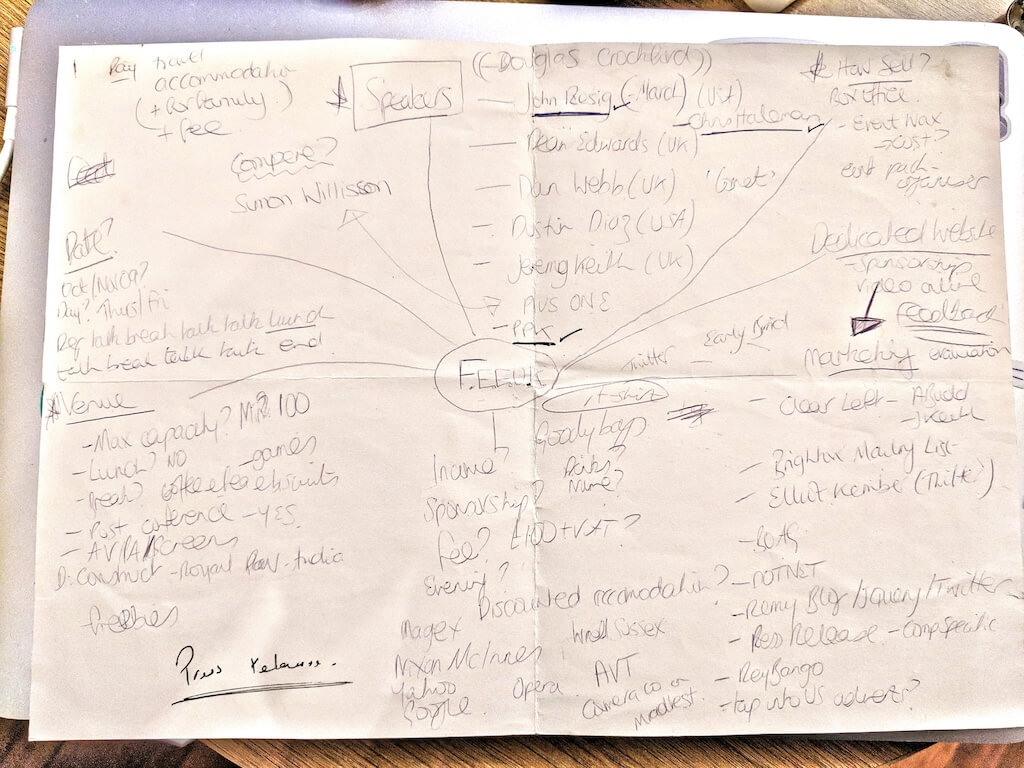 Pay travel
accommodation
(+ for family)
+ fee
Speakers
((- Douglas Crockford))
— John Resig (-March) (USA)
— Chris Heilman
— Dean Edwards (UK)
— Dan Webb (UK)
— Dustin Diaz (USA)
— Jeremy Keith (UK)
PLUS ONE
- PPK
Compere?
Simon Willisson
How Sell?
Box Office
- Event Wax
→ cost?
organiser
Date?
Oct/Nov 09?
Day? Thurs/Fri
Reg talk break talk talk lunch
talk break talk talk end
Dedicated Website
- Sponsorship
Feedback
evaluation
Marketing
- Early Bird
Twitter
t-shirt
Goody bags
Venue
- Max capacity? MR 100
- Lunch? NO
- games
- Break? coffee tea biscuits
- Post conference - YES
- AV/PA/Screens
D. Construct - Royal Pav - India
freebies
Press Release.
Income?
Drinks?
Sponsorship?
Fee? £100 + VAT?
Evening?
Discounted accomodation?
Wired Sussex
Nixon McInnes
Yahoo
Google
Opera
AVT
Camera co or
- Clear Left - A Budd
- J Keith
- Brighton Mailing List
- Elliot Kember (Twitter)
- DOTNET
- Remy Blog/Jquery/Twitter
- Press Release - Comp specific
- Rey Bango
- tap into US advert?